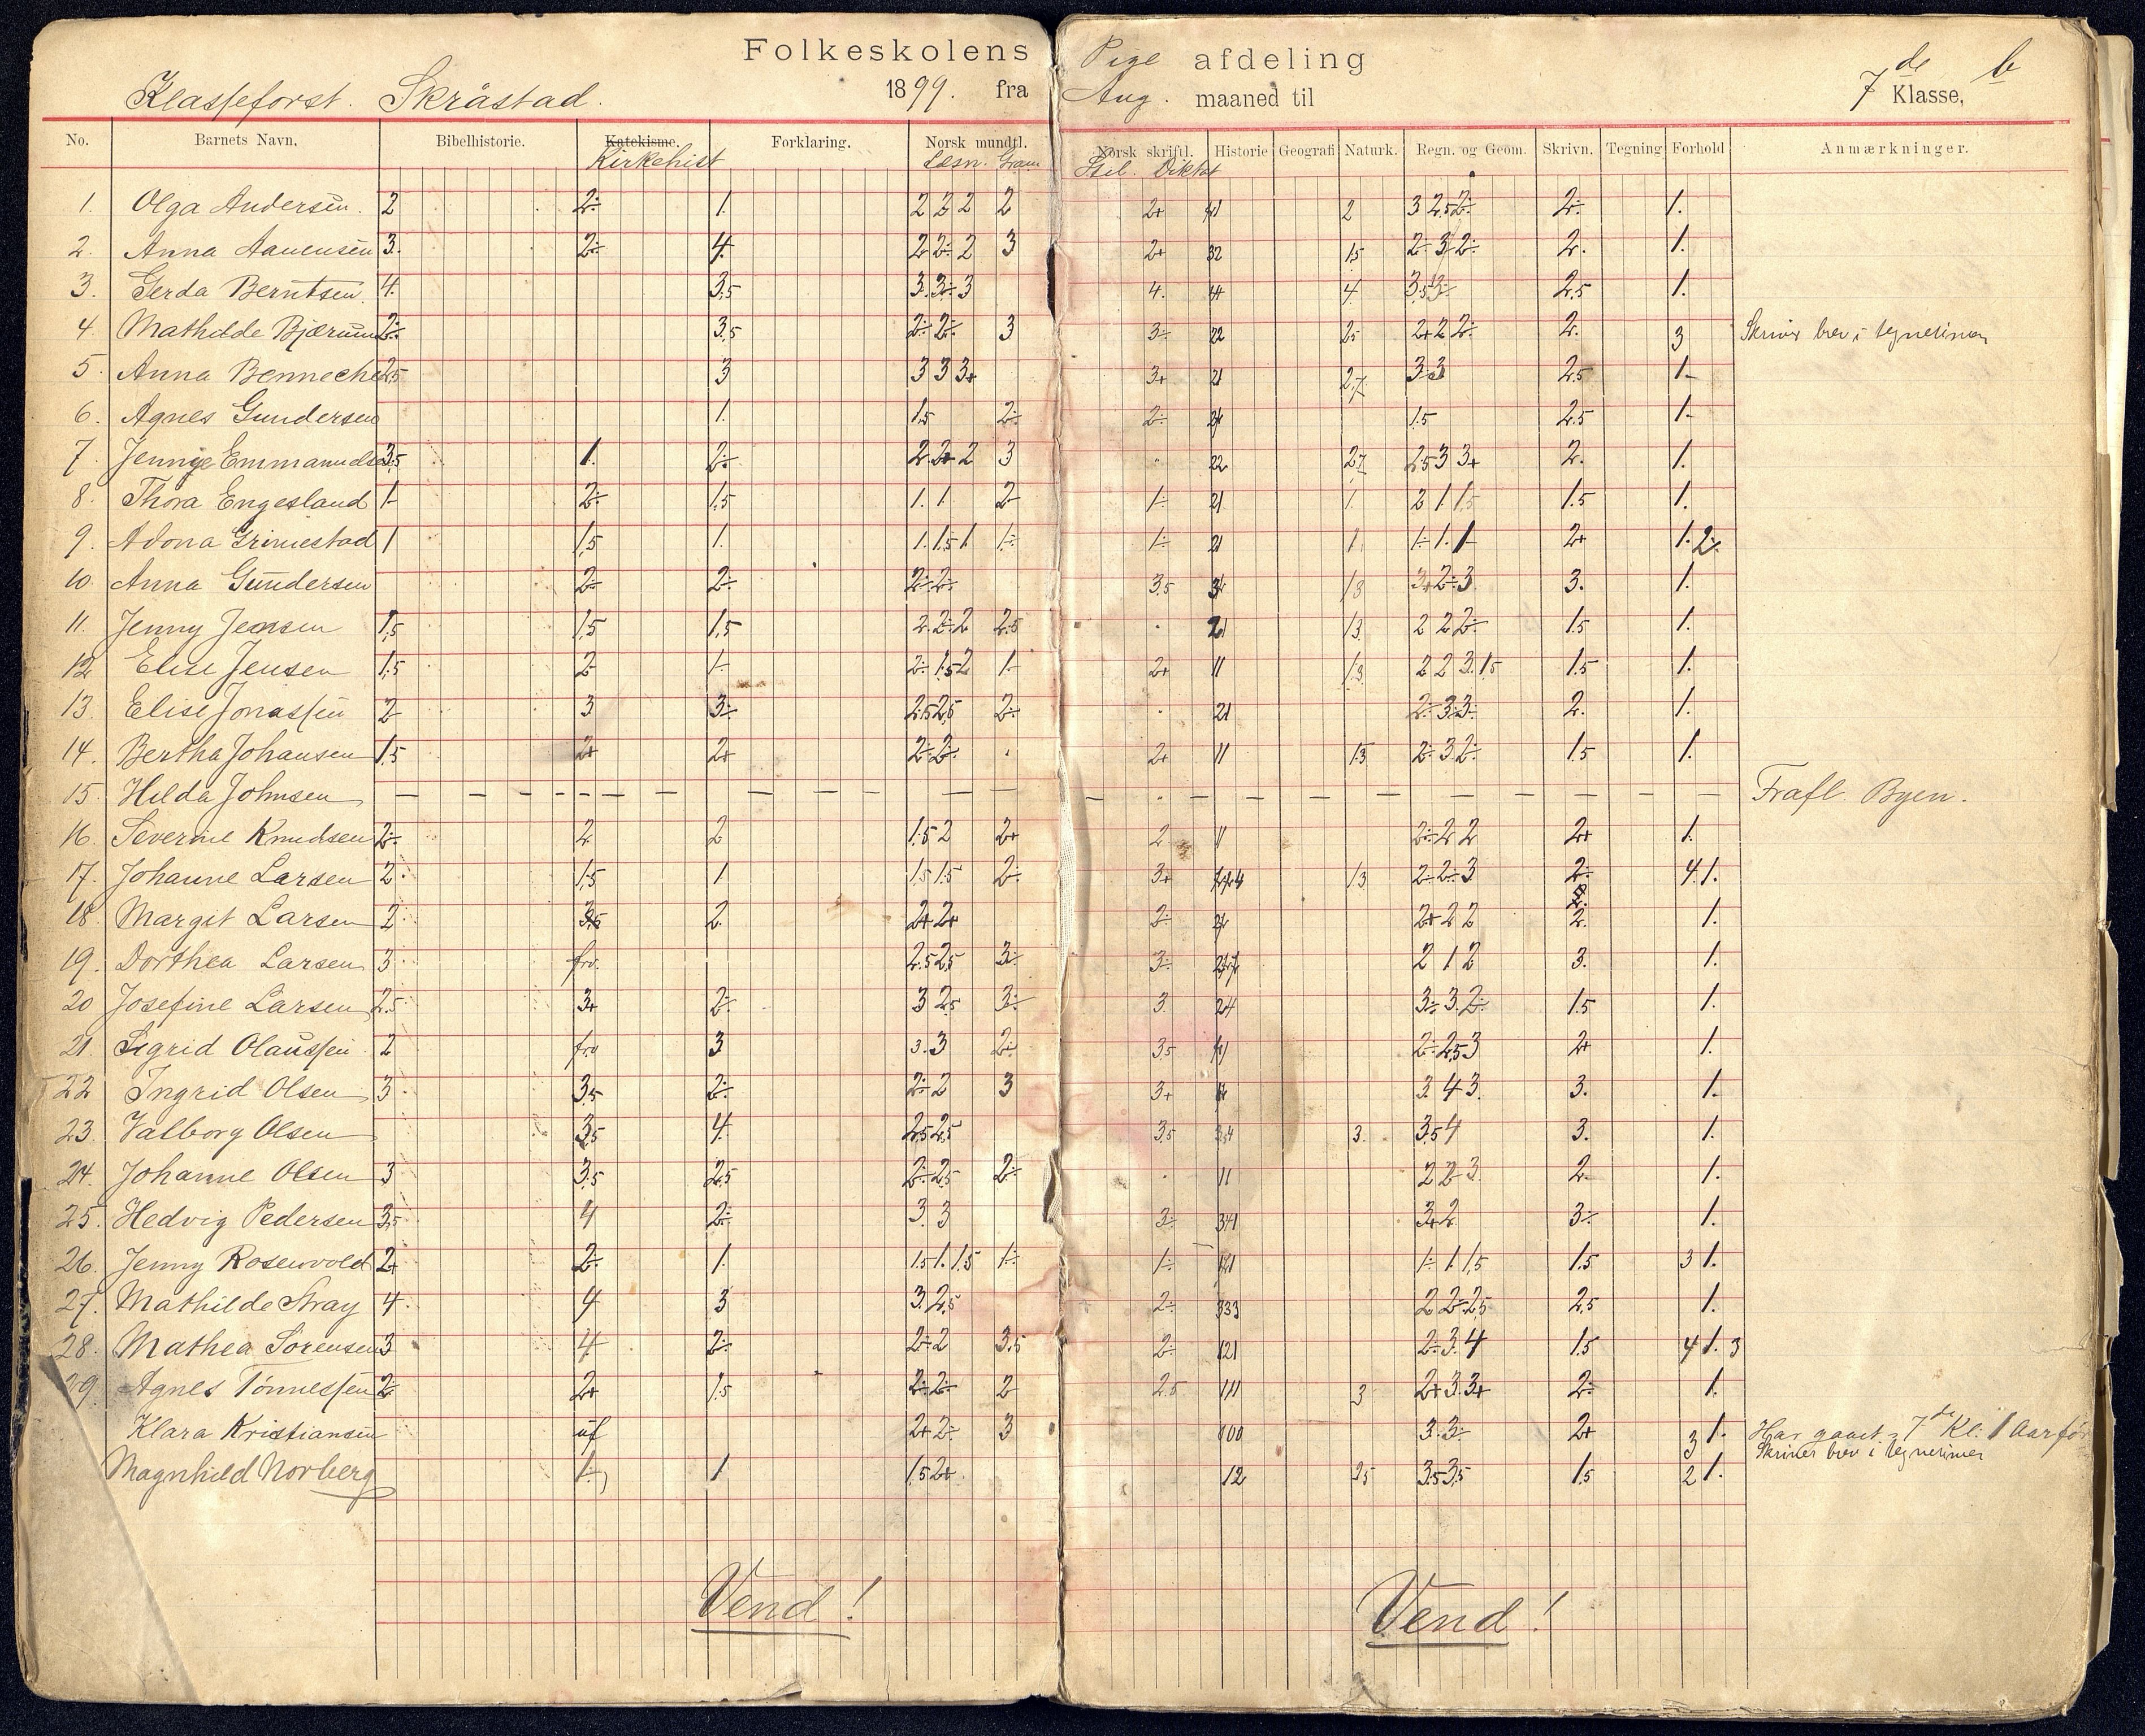 Folkeskolens Pige afdeling 7de b
Klasseforst. Skråstad. 1899. fra Aug. maaned til Klasse,
No. Barnets Navn, Bibelhistorie. Katekisme. Forklaring. Norsk mundtl. Norsk skriftl. Historie Geografi Naturk. Regn. og Geom. Skrivn. Tegning Forhold Anmærkninger.
Kirkehist Læsn. Gram Stil. Diktat
1. Olga Andersen. 2 2÷ 1. 2 2 2 2 2+ 2 3 2,5 2÷ 2÷ 1.
2. Anna Aanensen 3. 2÷ 4. 2 2÷ 2 3 2+ 32 1,5 2÷ 3 2÷ 2. 1.
3. Gerda Berntsen 4. 3,5 3. 3÷ 3 4. 4 2,5 1.
4. Mathilde Bjærum 2÷ 3,5 2÷ 2÷ 3 3÷ 22 25 2+ 2 2÷ 2. 3 Skriver brev i tegnetimen
5. Anna Benneche 2,5 3 3 3 3+ 3+ 21 2,7 3÷3 2,5 1-
6. Agnes Gundersen 1. 1,5 2÷ 2÷ 1,5 2,5 1-
7. Emmanuelsen 3,5 1. 2÷ 2. 2+ 2 3 22 2,7 2,5 3 3+ 2. 1.
8. Thora Engesland 1- 2÷ 1,5 1. 1 2- 1÷ 21 1. 2 1 1,5 1.5 1.
9. Adona Grimestad 1 1,5 1. 1. 1,5 1 1÷ 1÷ 21 1. 1÷ 1. 1- 2+ 1. 2÷
10. Anna Gundersen 2÷ 2÷ 2÷ 2÷ 3,5 1,3 3+ 2÷ 3 3. 1.
11. Jenny Jensen 1,5 1,5 1,5 2. 2÷ 2 2,5 21 1,3 2 2 2÷ 1.5 1.
12 Elise Jensen 1,5 2- 1- 2÷ 1,5 2 1- 2+ 11 1,3 2 2 3. 1,5 1.5 1.
13. Elise Jonassen 2 3 3÷ 2,5 2,5 2÷ 21 2÷ 3 3÷ 2. 1.
14. Bertha Johansen 1,5 2+ 2+ 2÷ 2÷ 2+ 11 1.3 2÷ 3 2÷ 1.5 1.
15. Hilda Johnsen — — — — — — — — — — Frafl. Byen.
16. Severine Knudsen 2÷ 2 2 1,5 2 2+ 2 11 2÷ 2 2 2+ 1.
17. Johanne Larsen 2. 1,5 1 1,5 1.5 2÷ 3+ 1,3 2÷ 2÷ 3 2÷ 4 1.
18. Margit Larsen 2 3,5 2. 2+ 2+ 2÷ 2+ 2 2 2. 1.
19. Dorthea Larsen 3 frv. 2.5 2,5 3÷ 3÷ 2 1 2 3. 1.
20 Josefine Larsen 2.5 3+ 2÷ 3 2,5 3÷ 3. 24 3÷ 3. 2÷ 1.5 1.
21. Sigrid Olaussen 2 frv 3 3. 3 2÷ 3,5 2÷ 2,5 3 2+ 1.
22 Ingrid Olsen 3 3,5 2÷ 2÷ 2 3 3+ 3. 4 3. 3. 1.
23. Valborg Olsen 3,5 4. 2,5 2,5 3,5 3. 3,5 4 3. 1.
24. Johanne Olsen 3 3,5 2,5 2÷ 2,5 2÷ 11 2 2 3 2. 1.
25. Hedvig Pedersen 3,5 4 2÷ 3. 3 3÷ 341 3+ 2 3÷ 1.
26. Jenny Rosenvold 2+ 2÷ 1. 1,5 1. 1,5 1÷ 1÷ 121 1÷ 1 1,5 1.5 3 1.
27. Mathilde Stray 4. 4 3 3. 2,5 2÷ 333 2 2÷ 2,5 2,5 1.
28. Mathea Sørensen 3 4 2÷ 2÷ 2 3,5 2÷ 121 2÷ 3. 4 1.5 4 1. 3
29. Agnes Tønnessen 2÷ 2+ 1,5 2÷ 2÷ 2 2,5 111 3 2+ 3. 3+ 2÷ 1.
Klara Kristiansen uf 2+ 2÷ 3 100 3. 3÷ 2+ 3 1. Har gaaet i 7de Kl. 1 Aar før
Skriver brev i tegnetimen
Magnhild Norberg 1. 1 1,5 2+ 12 2,5 3.5 3,5 1.5 2 1.
Vend! Vend!